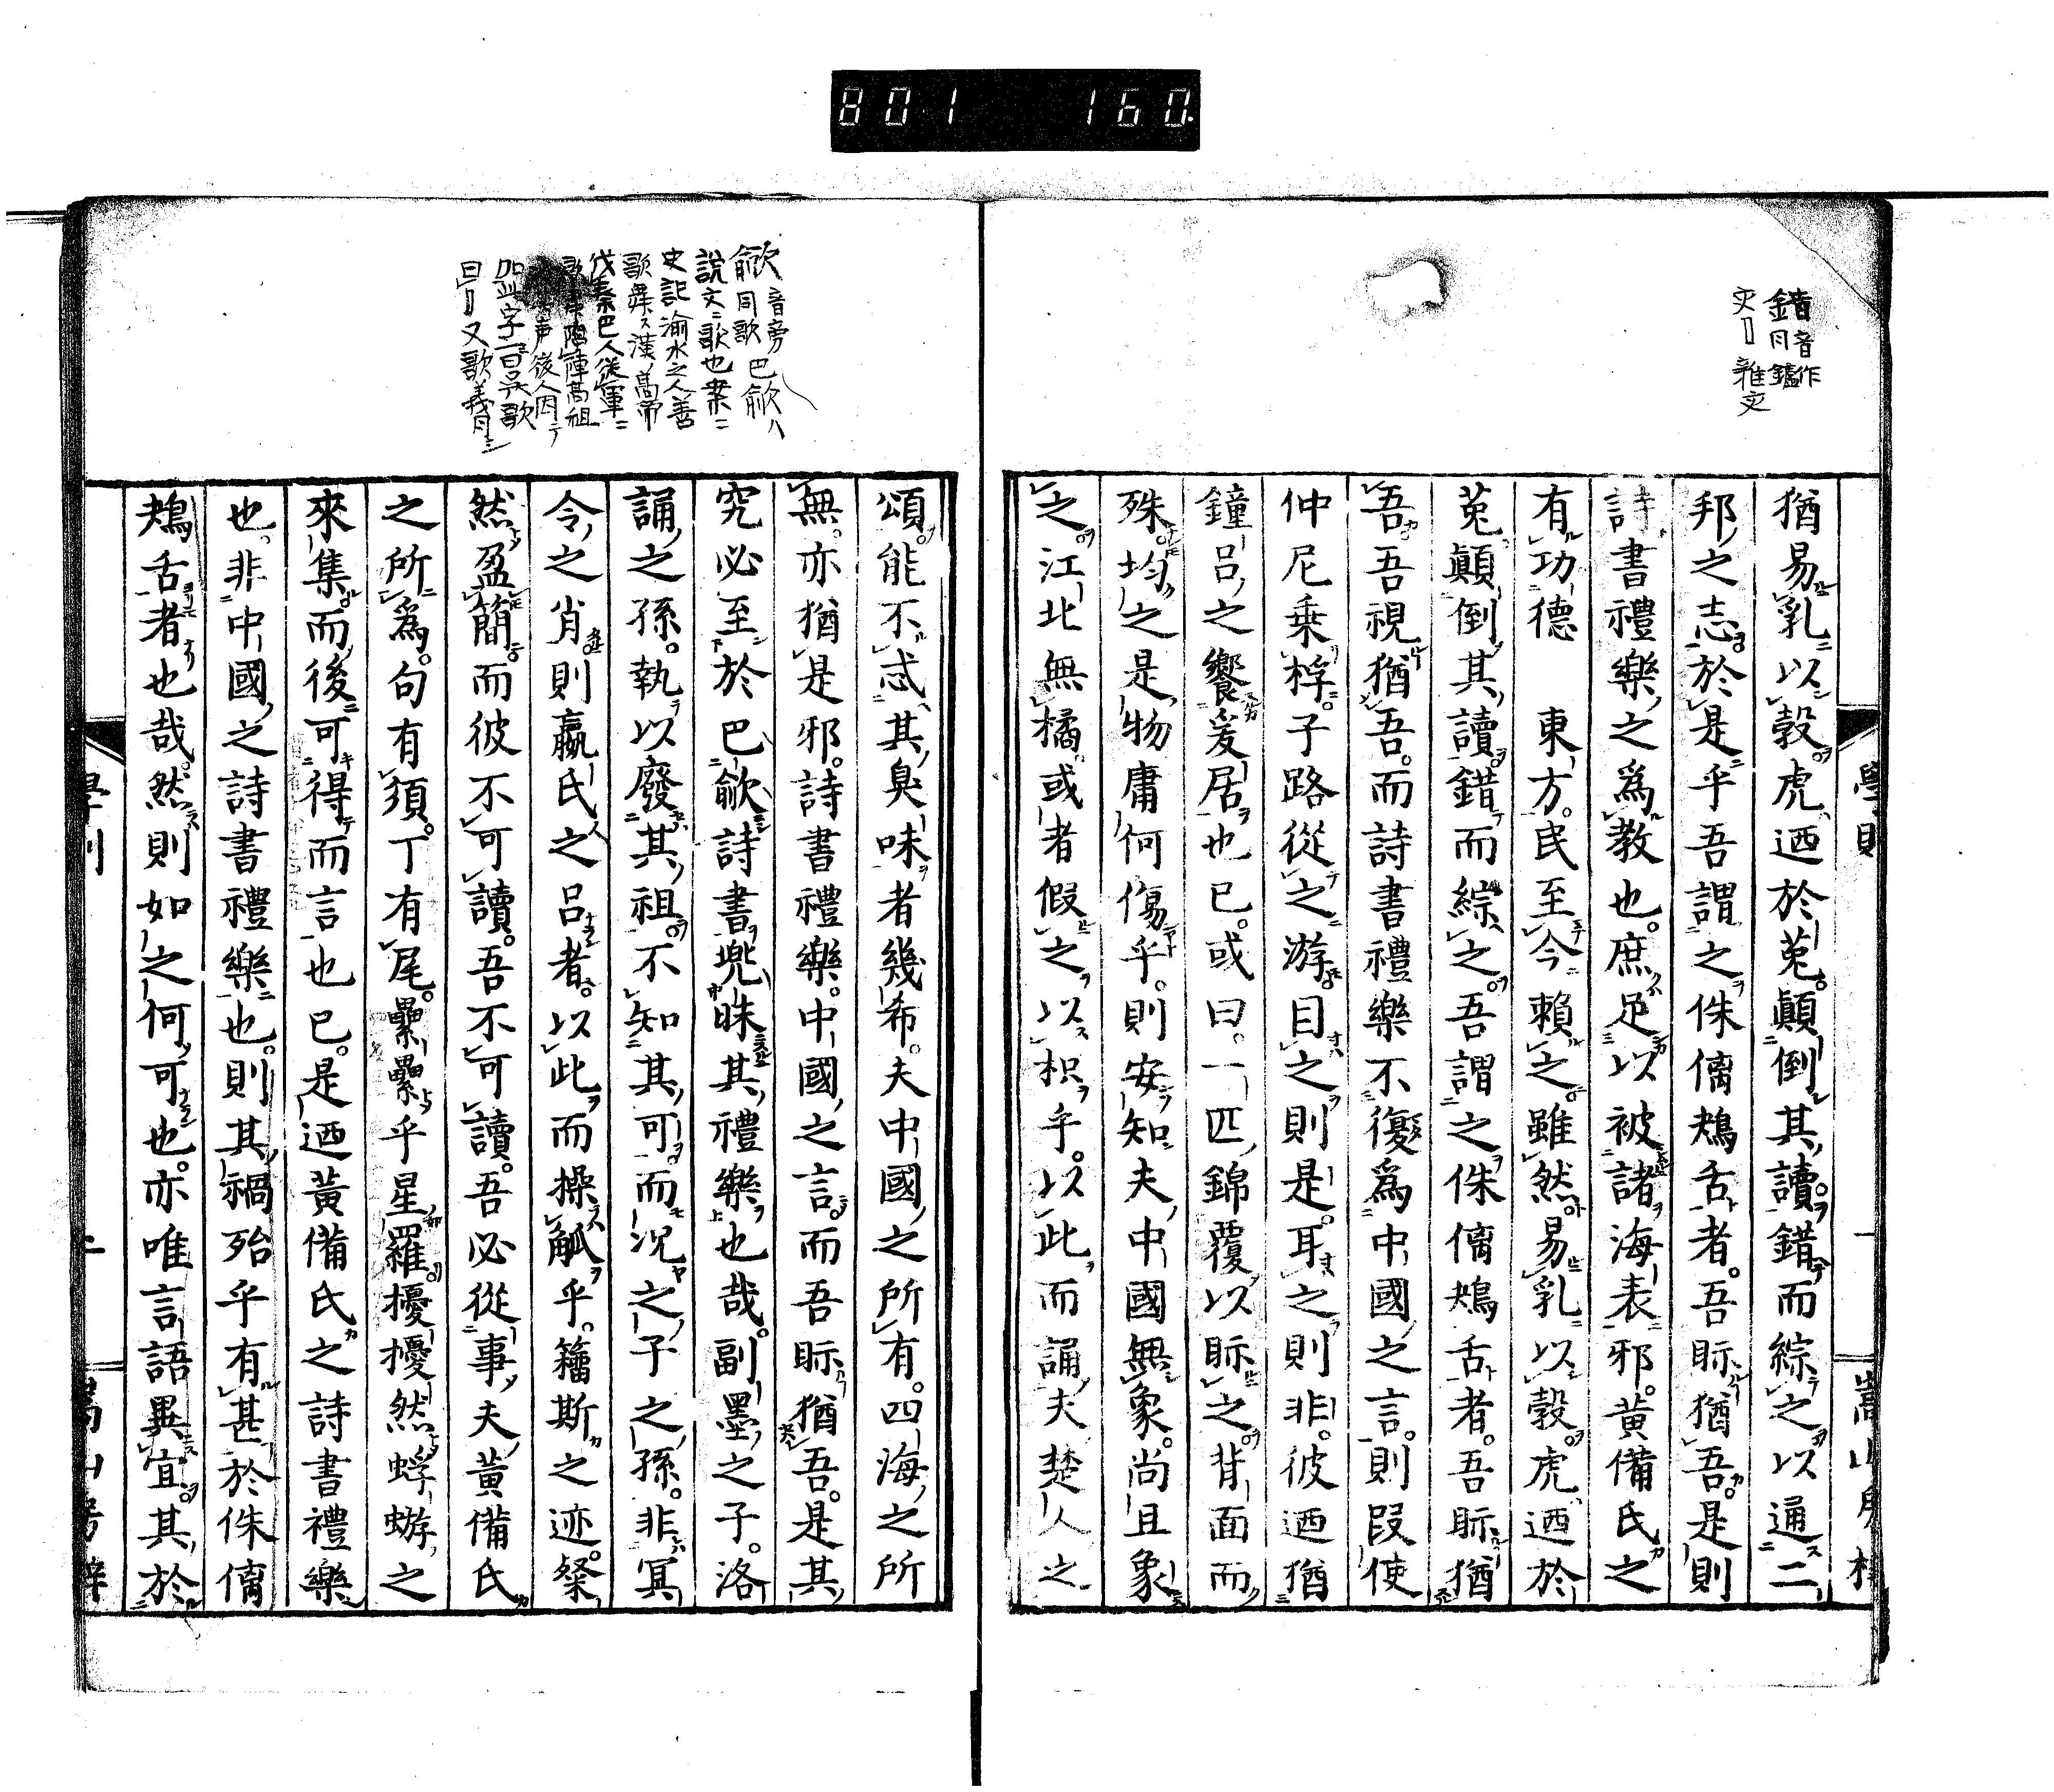 801 160
猶易乳以穀虎迺於菟顚倒其讀錯而綜之以通二
邦之志於是乎吾謂之侏𠌯鴂舌者吾眎猶吾是則
詩書禮樂之爲教也庶足以被諸海表邪黄備氏之
有功德　東方民至今賴之雖然易乳以穀虎迺於
菟顚倒其讀錯而綜之吾謂之侏𠌯鴂舌者吾眎猶
吾吾視猶吾而詩書禮樂不復爲中國之言則叚使
仲尼乘桴子路從之游目之則是耳之則非彼迺猶
鐘呂之饗爰居也已或曰一匹錦覆以眎之背面而
殊均之是物庸何傷乎則安知夫中國無象尚且象
之江北無橘或者假之以枳乎以此而誦夫楚人之
頌能不忒其臭味者幾希夫中國之所有四海之所
無亦猶是邪詩書禮樂中國之言而吾眎猶吾是其
究必至於巴歈詩書兜昧其禮樂也哉副墨之子洛
誦之孫執以廢其祖不知其可而況之子之孫非冥
令之肖則嬴氏之呂者以此而操觚乎籒斯之迹粲
然盈簡而彼不可讀吾不可讀吾必從事夫黄備氏
之所爲句有須丁有尾纍纍乎星羅擾擾然蜉蝣之
來集而後可得而言也已是迺黄備氏之詩書禮樂
也非中國之詩書禮樂也則其禍殆乎有甚於侏𠌯
鴂舌者也哉然則如之何可也亦唯言語異宜其於
學則
一
歈音旁巴歈ハ
歈同歌
説文ニ歌也案ニ
史記渝水之人善
歌舞ス漢ノ髙帝
伐秦巴人從軍ニ